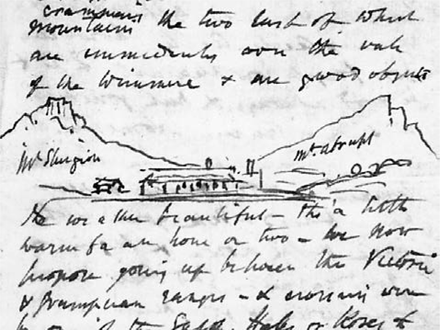 mountains the two last of which
are immediately over the vale
of the Wimmera & are good objects
Mt Sturgeon
Mt Abrupt
The weather beautiful - tho' a little
warm for an hour or two - We now
propose going up between the Victoria
& Grampian ranges - &